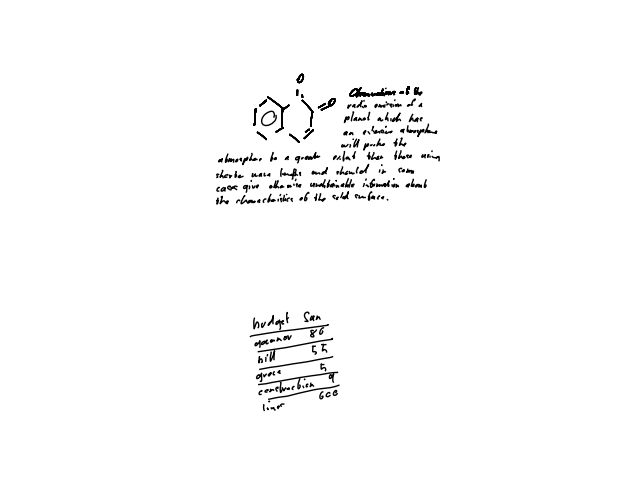 O
O
Observations of the
radio emission of a
planet which has
an extensive atmosphere
will probe the
atmosphere to a greater extent than those using
shorter wave lengths and should in some
cases give otherwise unobtainable information about
the characteristics of the solid surface.
budget San
governor 86
hill 55
gross 5
construction 9
liner 600